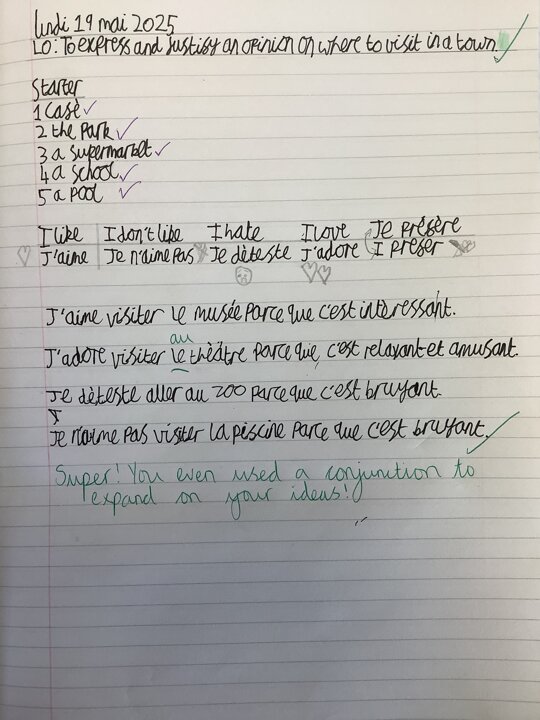 lundi 19 mai 2025
LO: To express and justify an opinion on where to visit in a town
Starter
1 Case
2 the park
3 a supermarket
4 a school
5 a pool
I like I don't like I hate I love Je préfère
J'aime Je n'aime pas Je dèteste J'adore I prefer
J'aime visiter le musée parce que c'est intèressant.
au
J'adore visiter le thèâtre parce que, c'est relaxant et amusant.
Je dèteste aller au zoo parce que c'est bruyant.
Je n'aime pas visiter la piscine parce que c'est bruyant.
Super! You even used a conjunction to
expand on your ideas!